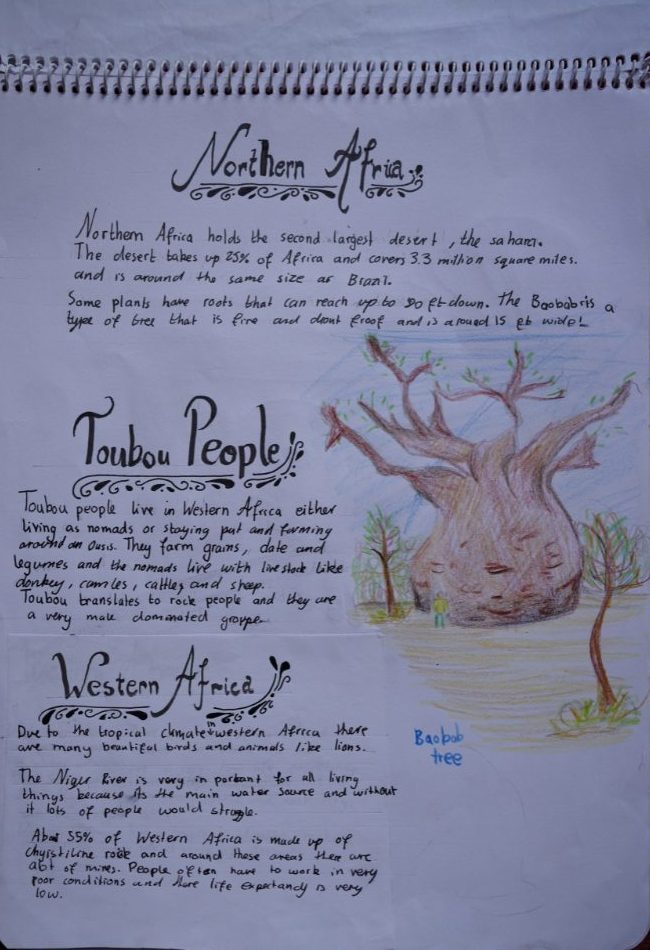 Northern Africa
Northern Africa holds the second largest desert, the sahara.
The desert takes up 25% of Africa and covers 3.3 million square miles.
and is around the same size as Brazil.
Some plants have roots that can reach up to 50 ft down. The Baobab is a
type of tree that is fire and drout froof and is around 15 ft wide!
Toubou People
Toubou people live in Western Africa either
living as nomads or staying put and farming
around an Oasis. They farm grains, date and
legumes and the nomads live with livestock like
donkey, camles, cattles and sheep.
Toubou translates to rock people and they are
a very male dominated groupe
Western Africa
Due to the tropical climate in western Africa there
are many beautiful birds and animals like lions.
The Niger River is very in portant for all living
things because its the main water source and without
it lots of people would struggle.
55% of Western Africa is made up of
rock and around these areas there are
alot of mines. People often have to work in very
poor conditions and there life expectancy is very
low.
Baobab
tree